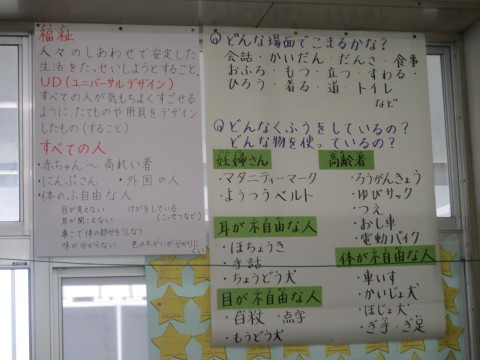 福祉
人々のしあわせで安定した
生活をたっせいしようとすること。
UD(ユニバーサルデザイン)
すべての人が気もちよくすごせる
ように、たてものや用具をデザイン
したもの(すること)
すべての人
・赤ちゃん〜高れい者
・にんぷさん ・外国の人
・体のふ自由な人
目が見えない けがをしている
耳が聞こえない (こっせつなど)
事こで体の部分をしなう
味が分からない 色のちがいが分かりに
Qどんな場面でこまるかな?
会話・かいだん・だんさ・食事
おふろ・もつ・立つ・すわる・
ひろう・着る・道・トイレ
など
Qどんなくふうをしているの?
どんな物を使っているの?
妊婦さん
・マタニティーマーク
・ようつうベルト
耳が不自由な人
・ほちょうき
・手話
・ちょうどう犬
目が不自由な人
・白杖・点字
・もうどう犬
高齢者
・ろうがんきょう
・ゆびサック
・つえ
・おし車
・電動バイク
体が不自由な人
・車いす
・かいじょ犬
・ほじょ犬
・ぎ手・ぎ足